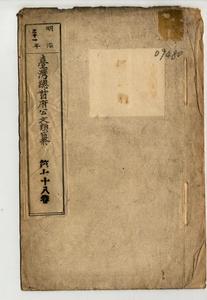 明治
三十一年
臺灣總督府公文類纂
第二十八卷
09480